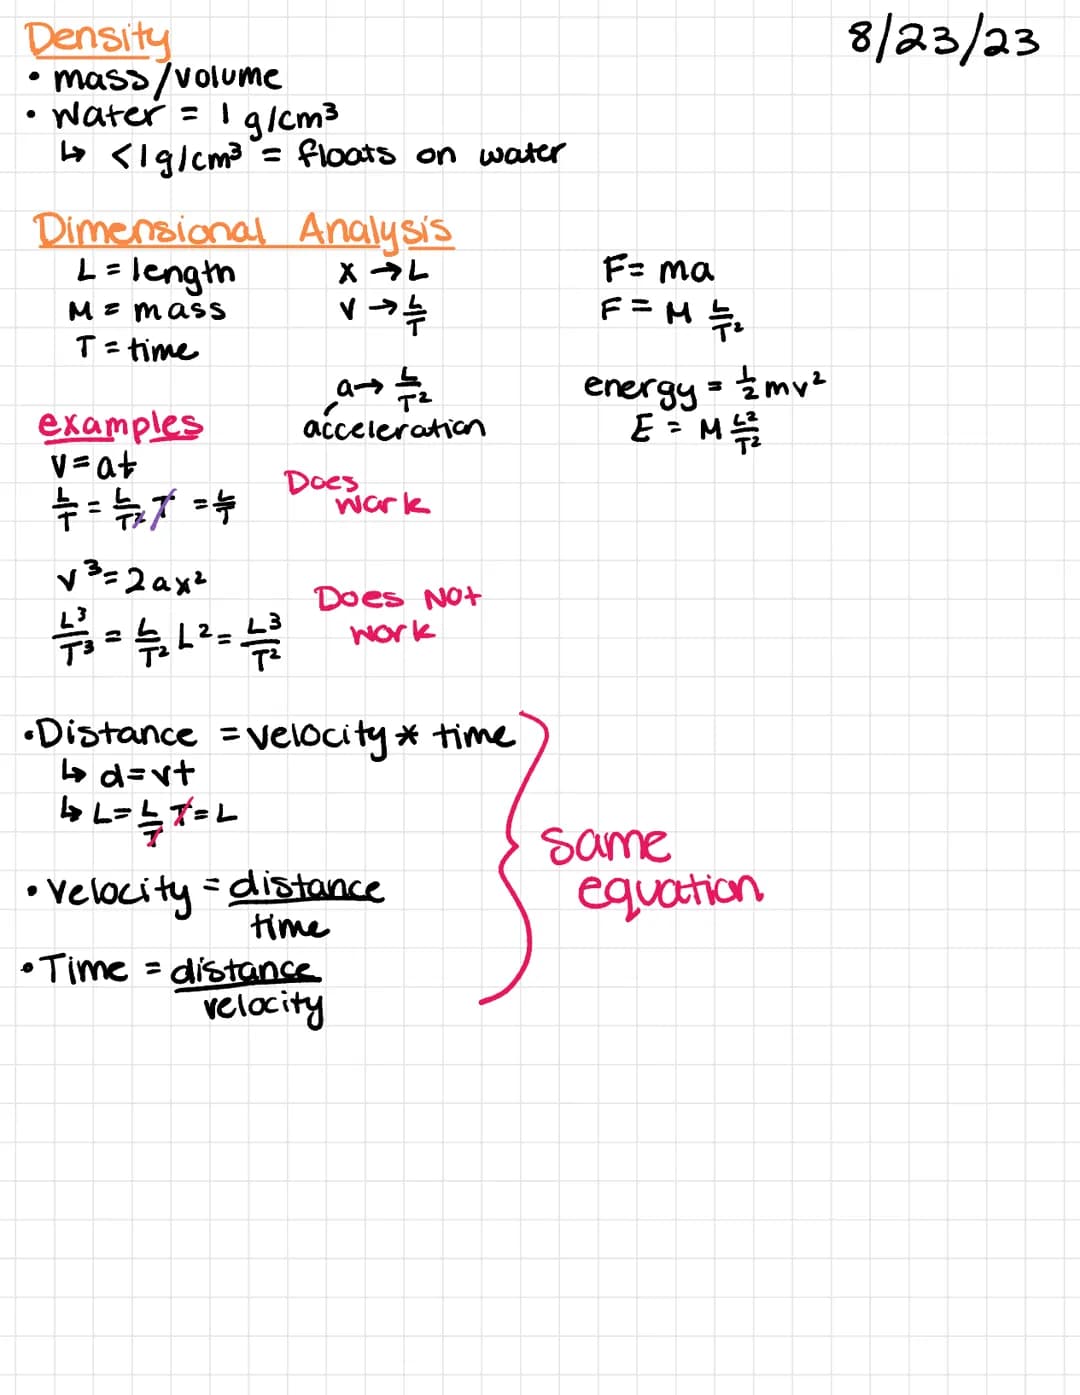 8/23/23
Density
• mass/volume
• Water = 1 g/cm³
↳ <1g/cm³ = floats on water
Dimensional Analysis
L = length
M = mass
T = time
x → L
v → L/T
a → L/T²
acceleration
F = ma
F = M L/T²
energy = ½mv²
E = M L²/T²
examples
v = at
L/T = L/T² T = L/T
Does
work
v³ = 2ax²
L³/T³ = L/T² L² = L³/T²
Does Not
work
• Distance = velocity * time
↳ d = vt
↳ L = L/T T = L
• Velocity = distance/time
• Time = distance/velocity
same
equation